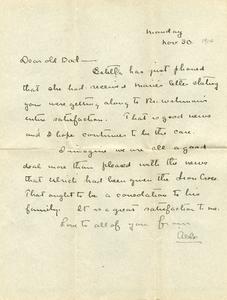 Monday
Nov. 30.
Dear old Dad—
Estella has just phoned
that she had received Marie's letter stating
you were getting along to
entire satisfaction. That is good news
and I hope continues to be the case.
I imagine we are all a good
deal more than pleased with the news
that Ulrich had been given the Iron Cross.
That ought to be a consolation to his
family. It is a great satisfaction to me.
Love to all of you from